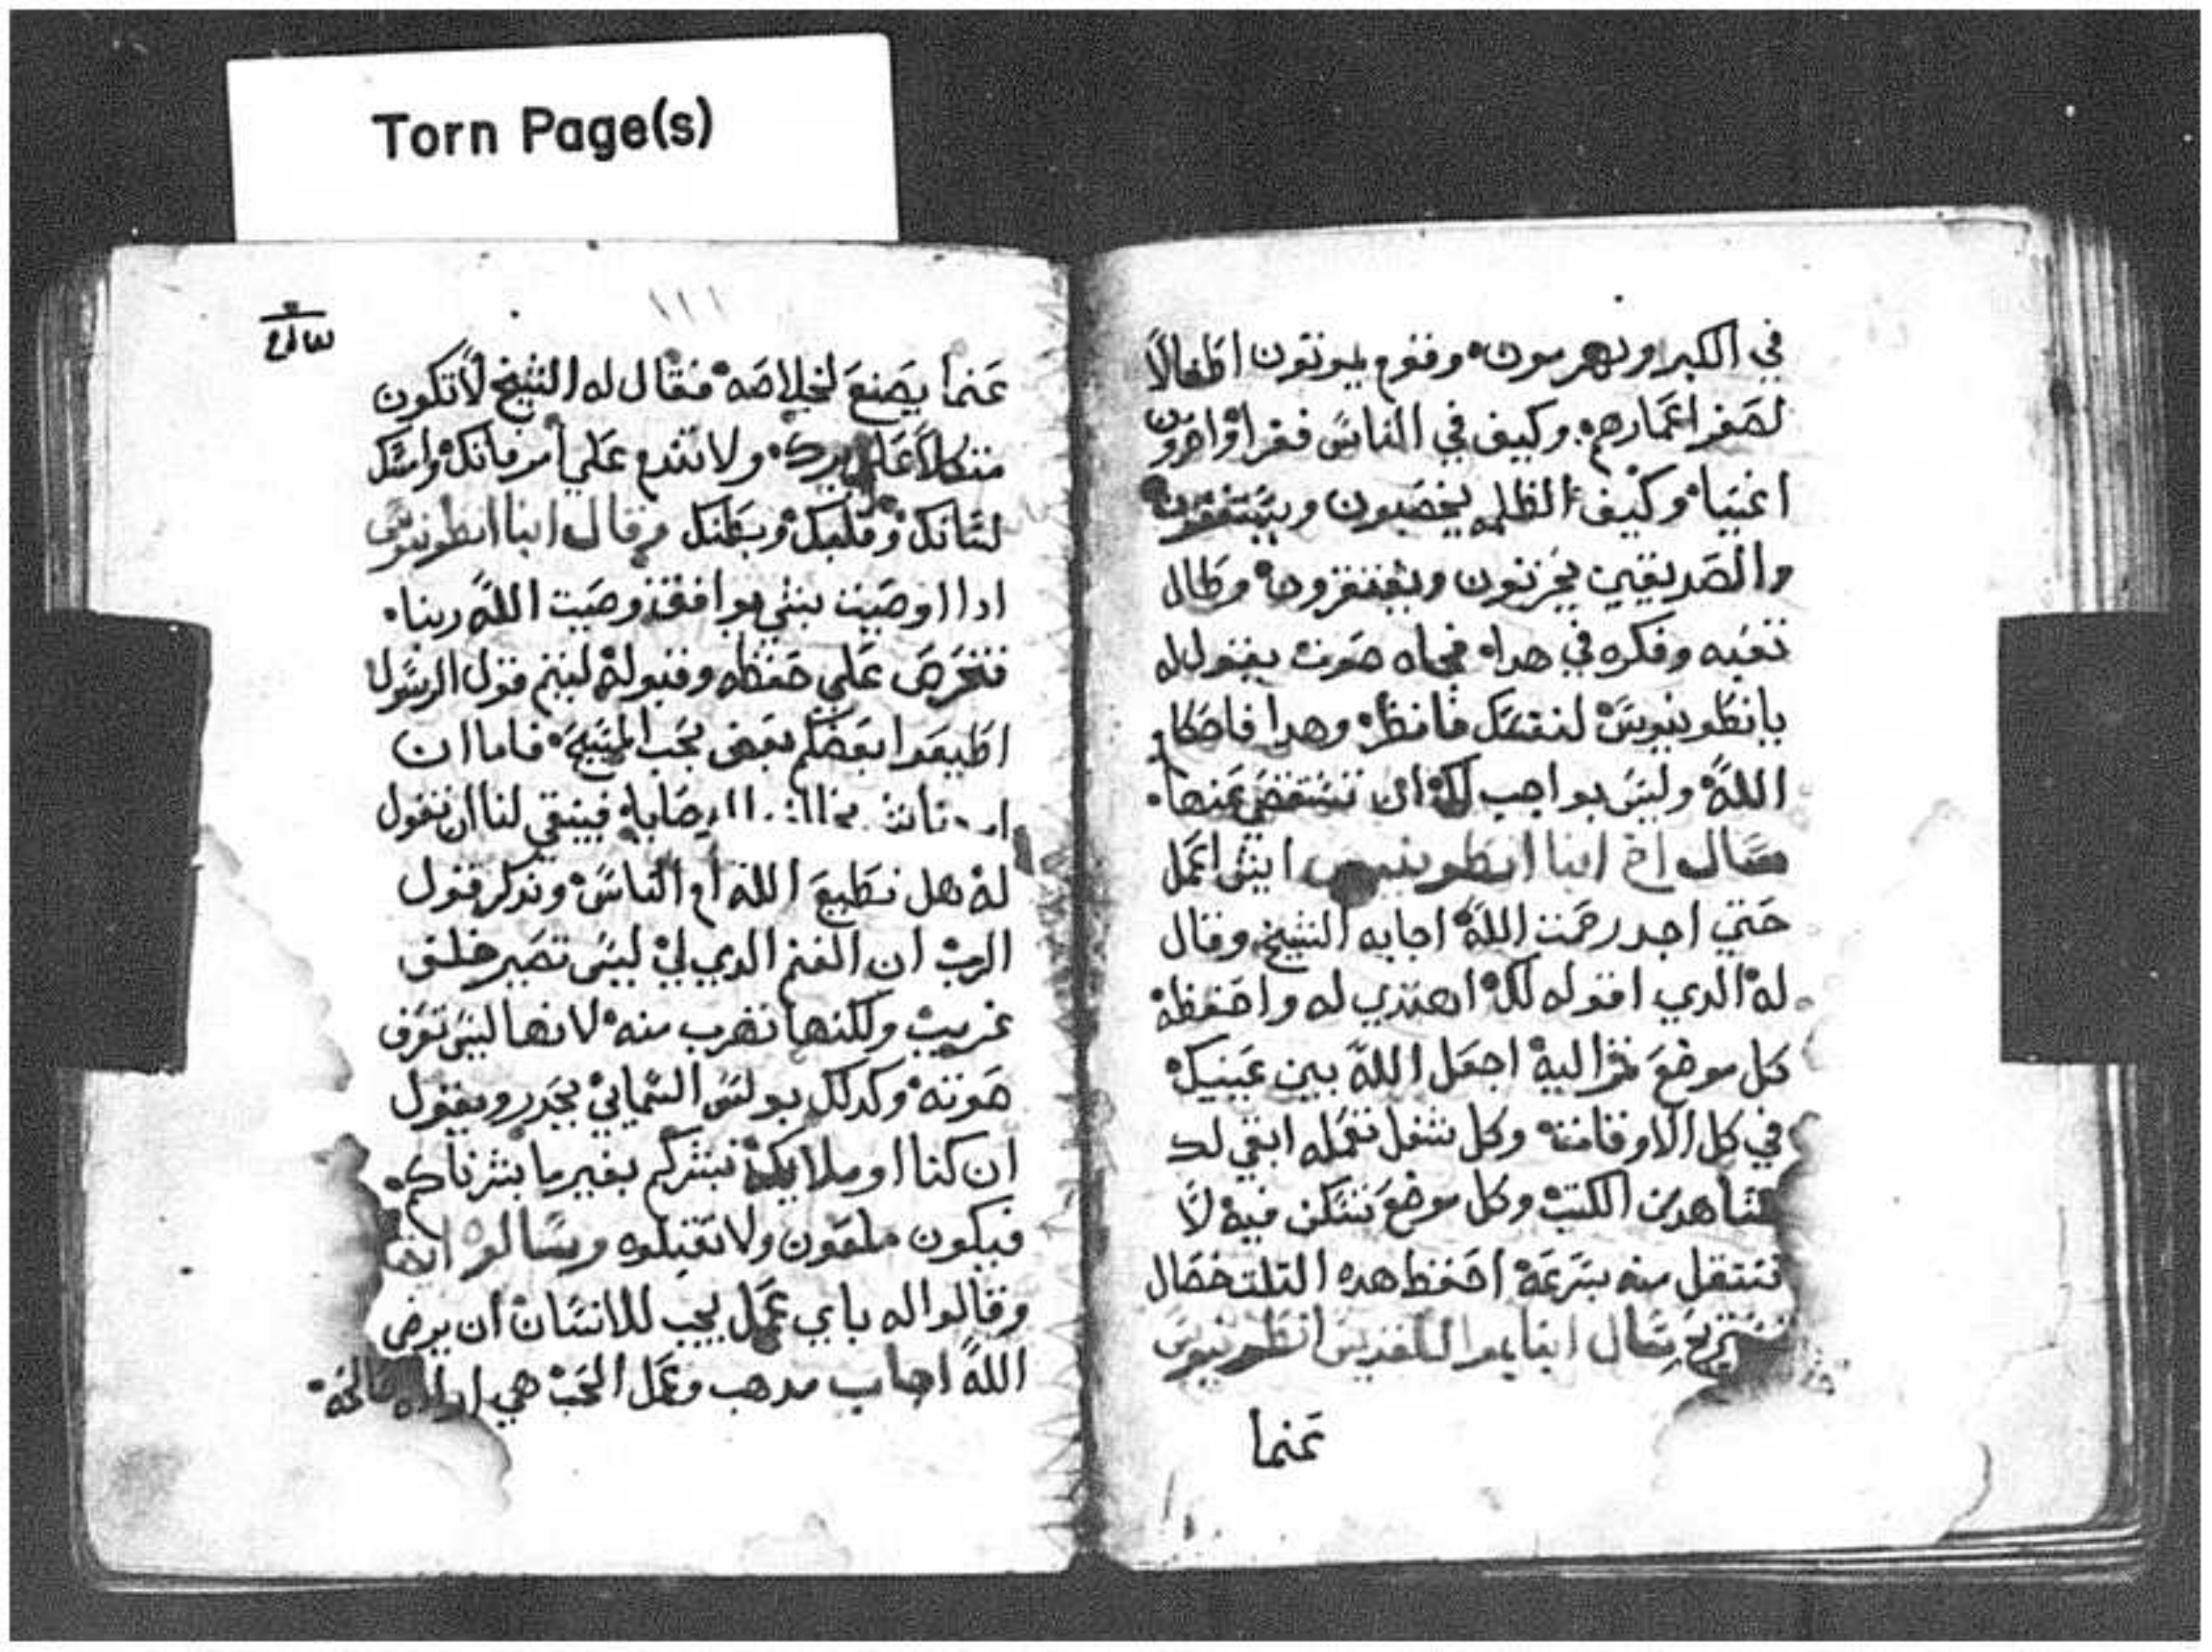 Torn Page(s)
في الكبر ويهرمون وقوم يموتون اطفالاً
لصغر اعمارهم وكيف في الناس فقرا واخرون
اغنيا وكيف الظلمه يخصبون ويستغنون
والصديقين يحزنون ويفتقرون وطال
تعبه وفكره في هدا فجاه صوت يقول له
يانطونيوس لنفسك فانظر وهدا فاحكام
الله وليس بواجب لك ان تستقضي عنها
سال اخ انبا انطونيوس ايش اعمل
حتي اجد رحمت الله اجابه الشيخ وقال
له الدي اقوله لك اهتدي له واحفظه
كل موضع اليه اجعل الله بين عينيك
في كل الاوقات وكل شغل تعمله ابقي لك
شاهد من الكتب وكل موضع تسكن فيه لا
تنتقل منه بسرعه احفظ هده التلت خصال
تستريح سال انبا القديس انطونيوس
عنما
١١١
عنما يصنع لخلاصه فقال له الشيخ لا تكون
متكلاً علي برك ولا تندم علي امر فاتك وامسك
لسانك وقلبك وبطنك وقال انبا انطونيوس
ادا اوصيت بشي يوافق وصيت الله ربنا
فتحرص علي حفظه وقبوله ليتم قول الرسول
اطيعوا بعضكم بعض بحب المسيح فاما ان
وصايا فينبقي لنا ان نقول
له هل نطيع الله ام الناس وندكر قول
الرب ان الغنم الدي لي ليس تصير خلف
غريب ولكنها تهرب منه لانها ليس تعرف
صوته وكدلك بولس السماني يحدر ويقول
ان كنا او ملايكه نبشركم بغير ما بشرناكم
فيكون ملعون ولا تقبلوه وسالوه ايضا
وقالوا له باي عمل يجب للانسان ان يرضي
الله اجاب مدهب وعمل الحب هي